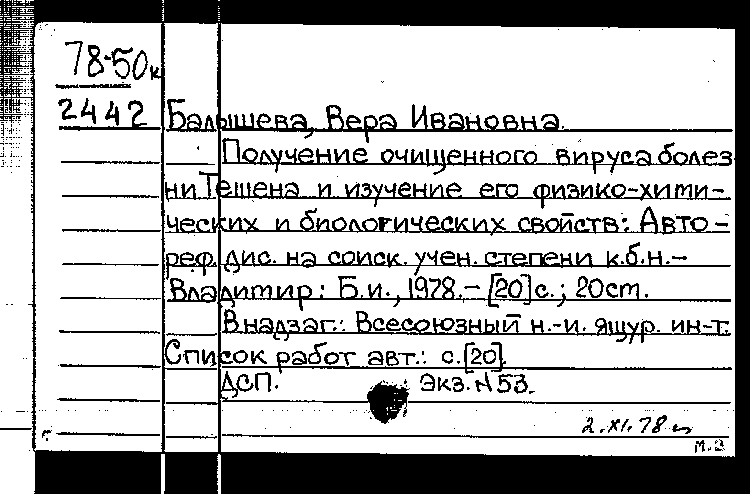 78-50к
2442
Балышева, Вера Ивановна.
Получение очищенного вируса болез
ни Тешена и изучение его физико-хими-
ческих и биологических свойств: Авто-
реф. дис. на соиск. учен. степени к.б.н.-
Владимир: Б.и., 1978.- [20] с.; 20 ст.
В надзаг.: Всесоюзный н.-и. ящур. ин-т.
Список работ авт.: с. [20].
ДСП. Экз. N 53.
2.XI.78